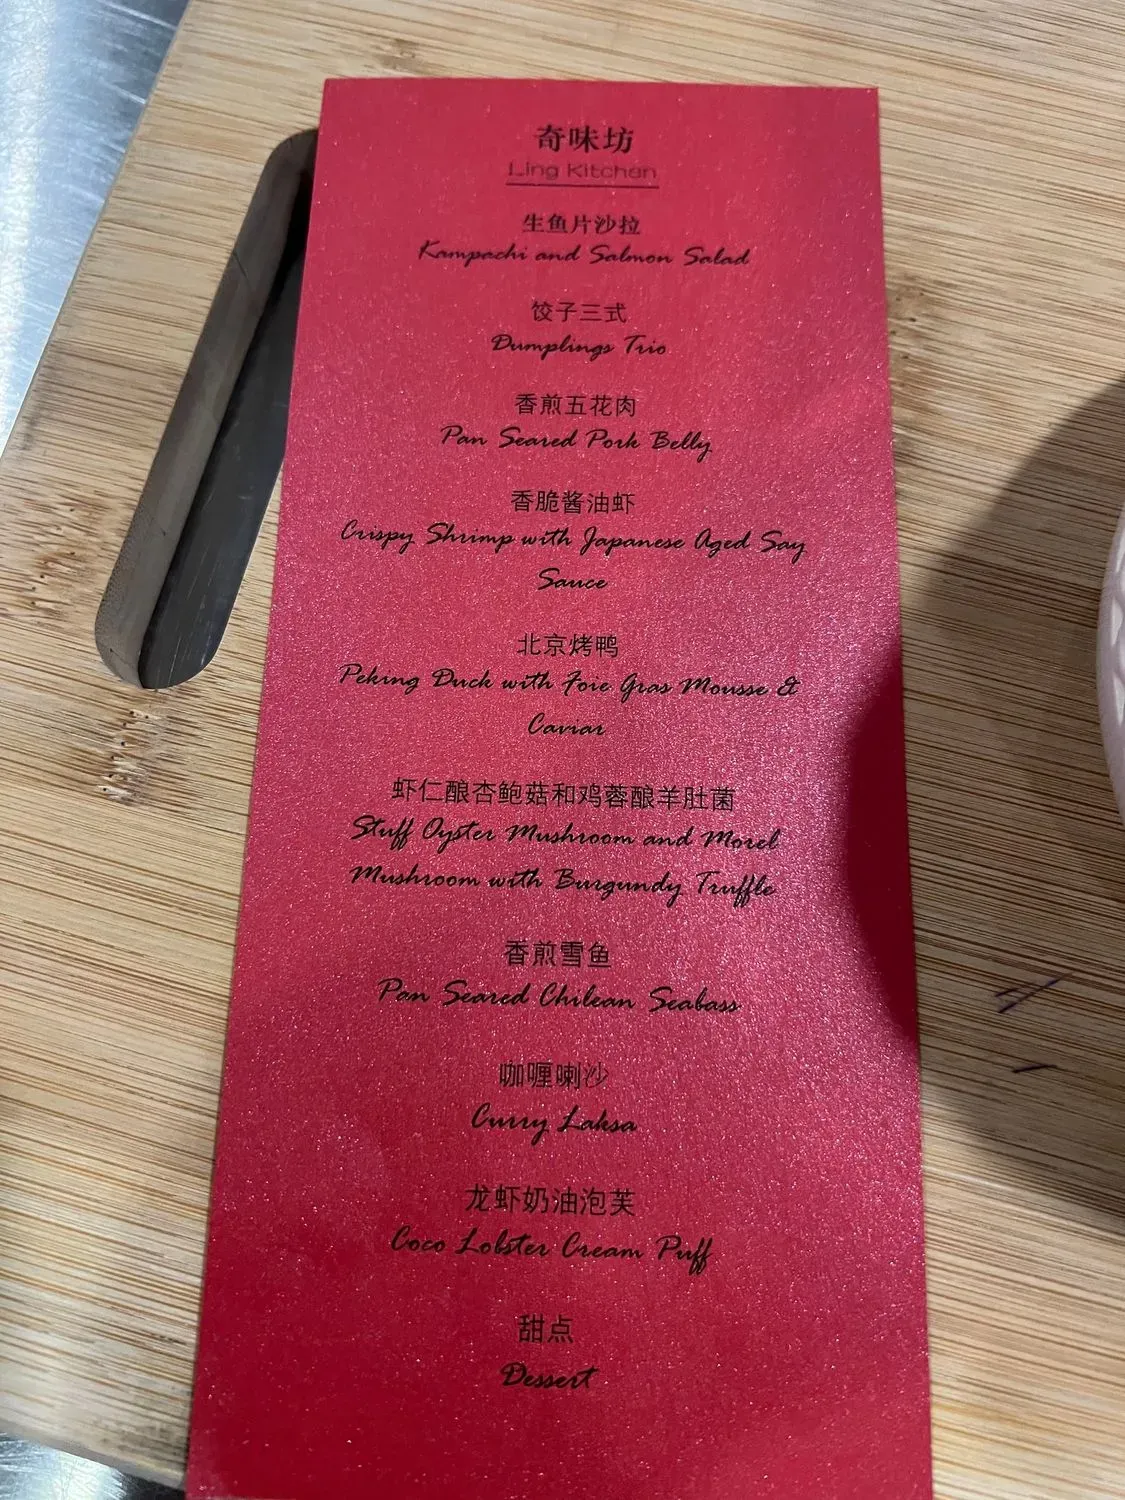 奇味坊
Ling Kitchen
生鱼片沙拉
Kampachi and Salmon Salad
饺子三式
Dumplings Trio
香煎五花肉
Pan Seared Pork Belly
香脆酱油虾
Crispy Shrimp with Japanese Aged Say
Sauce
北京烤鸭
Peking Duck with Foie Gras Mousse &
Caviar
虾仁酿杏鲍菇和鸡蓉酿羊肚菌
Stuff Oyster Mushroom and Morel
Mushroom with Burgundy Truffle
香煎雪鱼
Pan Seared Chilean Seabass
咖喱喇沙
Curry Laksa
龙虾奶油泡芙
Coco Lobster Cream Puff
甜点
Dessert